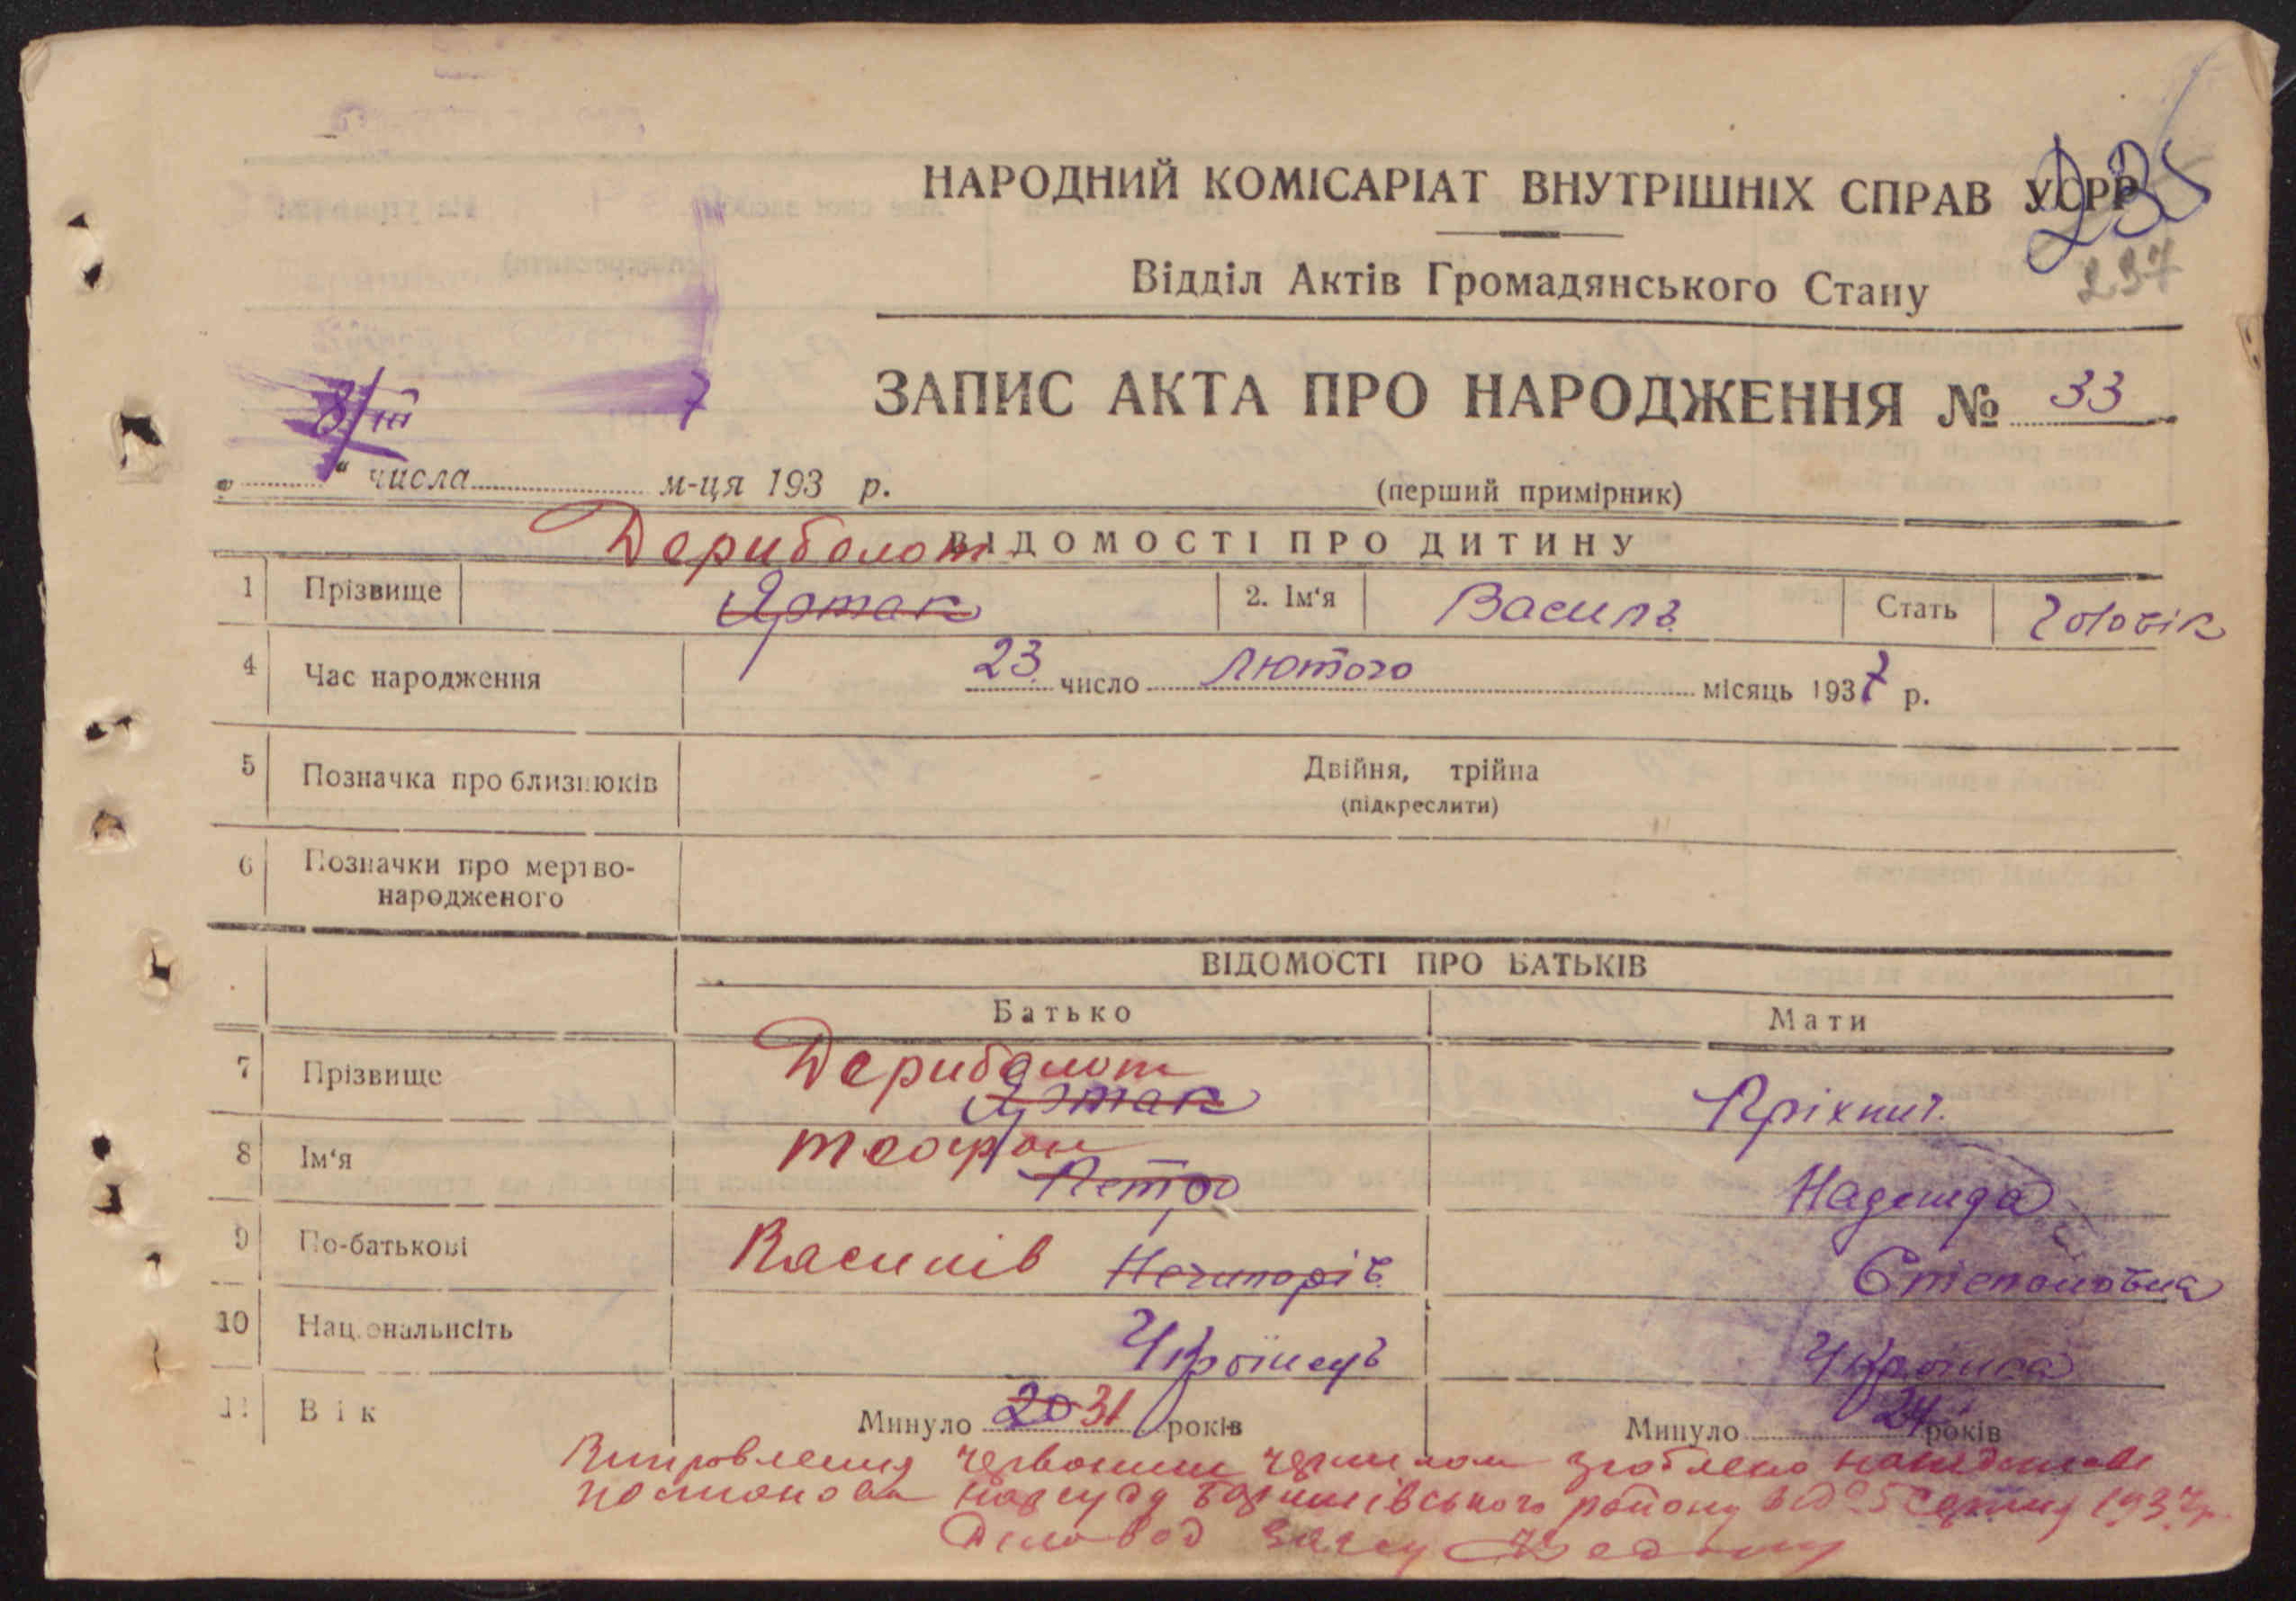 235
237
НАРОДНИЙ КОМІСАРІАТ ВНУТРІШНІХ СПРАВ УСРР
Відділ Актів Громадянського Стану
ЗАПИС АКТА ПРО НАРОДЖЕННЯ № 33
8/III 7
„ “ числа м-ця 193 р.
(перший примірник)
ВІДОМОСТІ ПРО ДИТИНУ
Дериболот
1 Прізвище Яртак 2. Ім‘я Василь Стать Чоловік
4 Час народження 23 число Лютого місяць 1937 р.
5 Позначка про близнюків Двійня, трійна
(підкреслити)
6 Позначки про мертво-
народженого
ВІДОМОСТІ ПРО БАТЬКІВ
Батько Мати
7 Прізвище Дериболот Яртак
8 Ім‘я Теофан Петро Надежда
9 По-батькові Василів Нечипорів Степановна
10 Національність Українець Українка
11 Вік Минуло 20 31 років Минуло 24 років
Виправлення червоним чернилом зроблено на підставі
постанови нарсуду Баришівського району від 5 серпня 1937 р.
Діловод Загсу